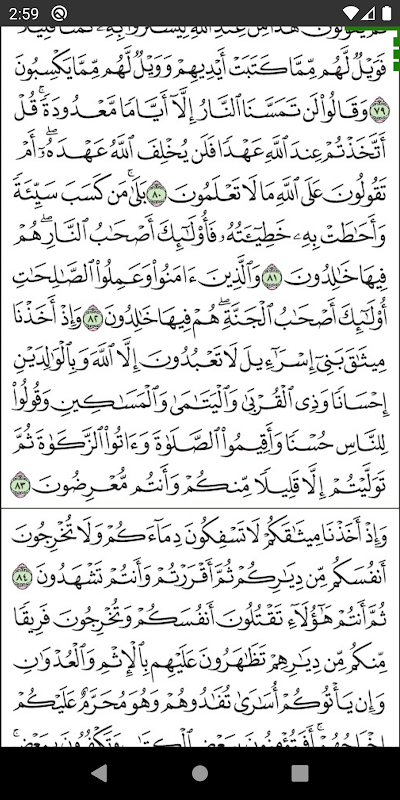 2:59
ثُمَّ يَقُولُونَ هَٰذَا مِنْ عِندِ ٱللَّهِ لِيَشْتَرُوا۟ بِهِۦ ثَمَنًا قَلِيلًا
فَوَيْلٌ لَّهُم مِّمَّا كَتَبَتْ أَيْدِيهِمْ وَوَيْلٌ لَّهُم مِّمَّا يَكْسِبُونَ
٧٩ وَقَالُوا۟ لَن تَمَسَّنَا ٱلنَّارُ إِلَّآ أَيَّامًا مَّعْدُودَةً ۚ قُلْ
أَتَّخَذْتُمْ عِندَ ٱللَّهِ عَهْدًا فَلَن يُخْلِفَ ٱللَّهُ عَهْدَهُۥٓ ۖ أَمْ
تَقُولُونَ عَلَى ٱللَّهِ مَا لَا تَعْلَمُونَ ٨٠ بَلَىٰ مَن كَسَبَ سَيِّئَةً
وَأَحَٰطَتْ بِهِۦ خَطِيٓـَٔتُهُۥ فَأُو۟لَٰٓئِكَ أَصْحَٰبُ ٱلنَّارِ ۖ هُمْ
فِيهَا خَٰلِدُونَ ٨١ وَٱلَّذِينَ ءَامَنُوا۟ وَعَمِلُوا۟ ٱلصَّٰلِحَٰتِ
أُو۟لَٰٓئِكَ أَصْحَٰبُ ٱلْجَنَّةِ ۖ هُمْ فِيهَا خَٰلِدُونَ ٨٢ وَإِذْ أَخَذْنَا
مِيثَٰقَ بَنِىٓ إِسْرَٰٓءِيلَ لَا تَعْبُدُونَ إِلَّا ٱللَّهَ وَبِٱلْوَٰلِدَيْنِ
إِحْسَانًا وَذِى ٱلْقُرْبَىٰ وَٱلْيَتَٰمَىٰ وَٱلْمَسَٰكِينِ وَقُولُوا۟
لِلنَّاسِ حُسْنًا وَأَقِيمُوا۟ ٱلصَّلَوٰةَ وَءَاتُوا۟ ٱلزَّكَوٰةَ ثُمَّ
تَوَلَّيْتُمْ إِلَّا قَلِيلًا مِّنكُمْ وَأَنتُم مُّعْرِضُونَ ٨٣
وَإِذْ أَخَذْنَا مِيثَٰقَكُمْ لَا تَسْفِكُونَ دِمَآءَكُمْ وَلَا تُخْرِجُونَ
أَنفُسَكُم مِّن دِيَٰرِكُمْ ثُمَّ أَقْرَرْتُمْ وَأَنتُمْ تَشْهَدُونَ ٨٤
ثُمَّ أَنتُمْ هَٰٓؤُلَآءِ تَقْتُلُونَ أَنفُسَكُمْ وَتُخْرِجُونَ فَرِيقًا
مِّنكُم مِّن دِيَٰرِهِمْ تَظَٰهَرُونَ عَلَيْهِم بِٱلْإِثْمِ وَٱلْعُدْوَٰنِ
وَإِن يَأْتُوكُمْ أُسَٰرَىٰ تُفَٰدُوهُمْ وَهُوَ مُحَرَّمٌ عَلَيْكُمْ
إِخْرَاجُهُمْ ۚ أَفَتُؤْمِنُونَ بِبَعْضِ ٱلْكِتَٰبِ وَتَكْفُرُونَ بِبَعْضٍ ۚ